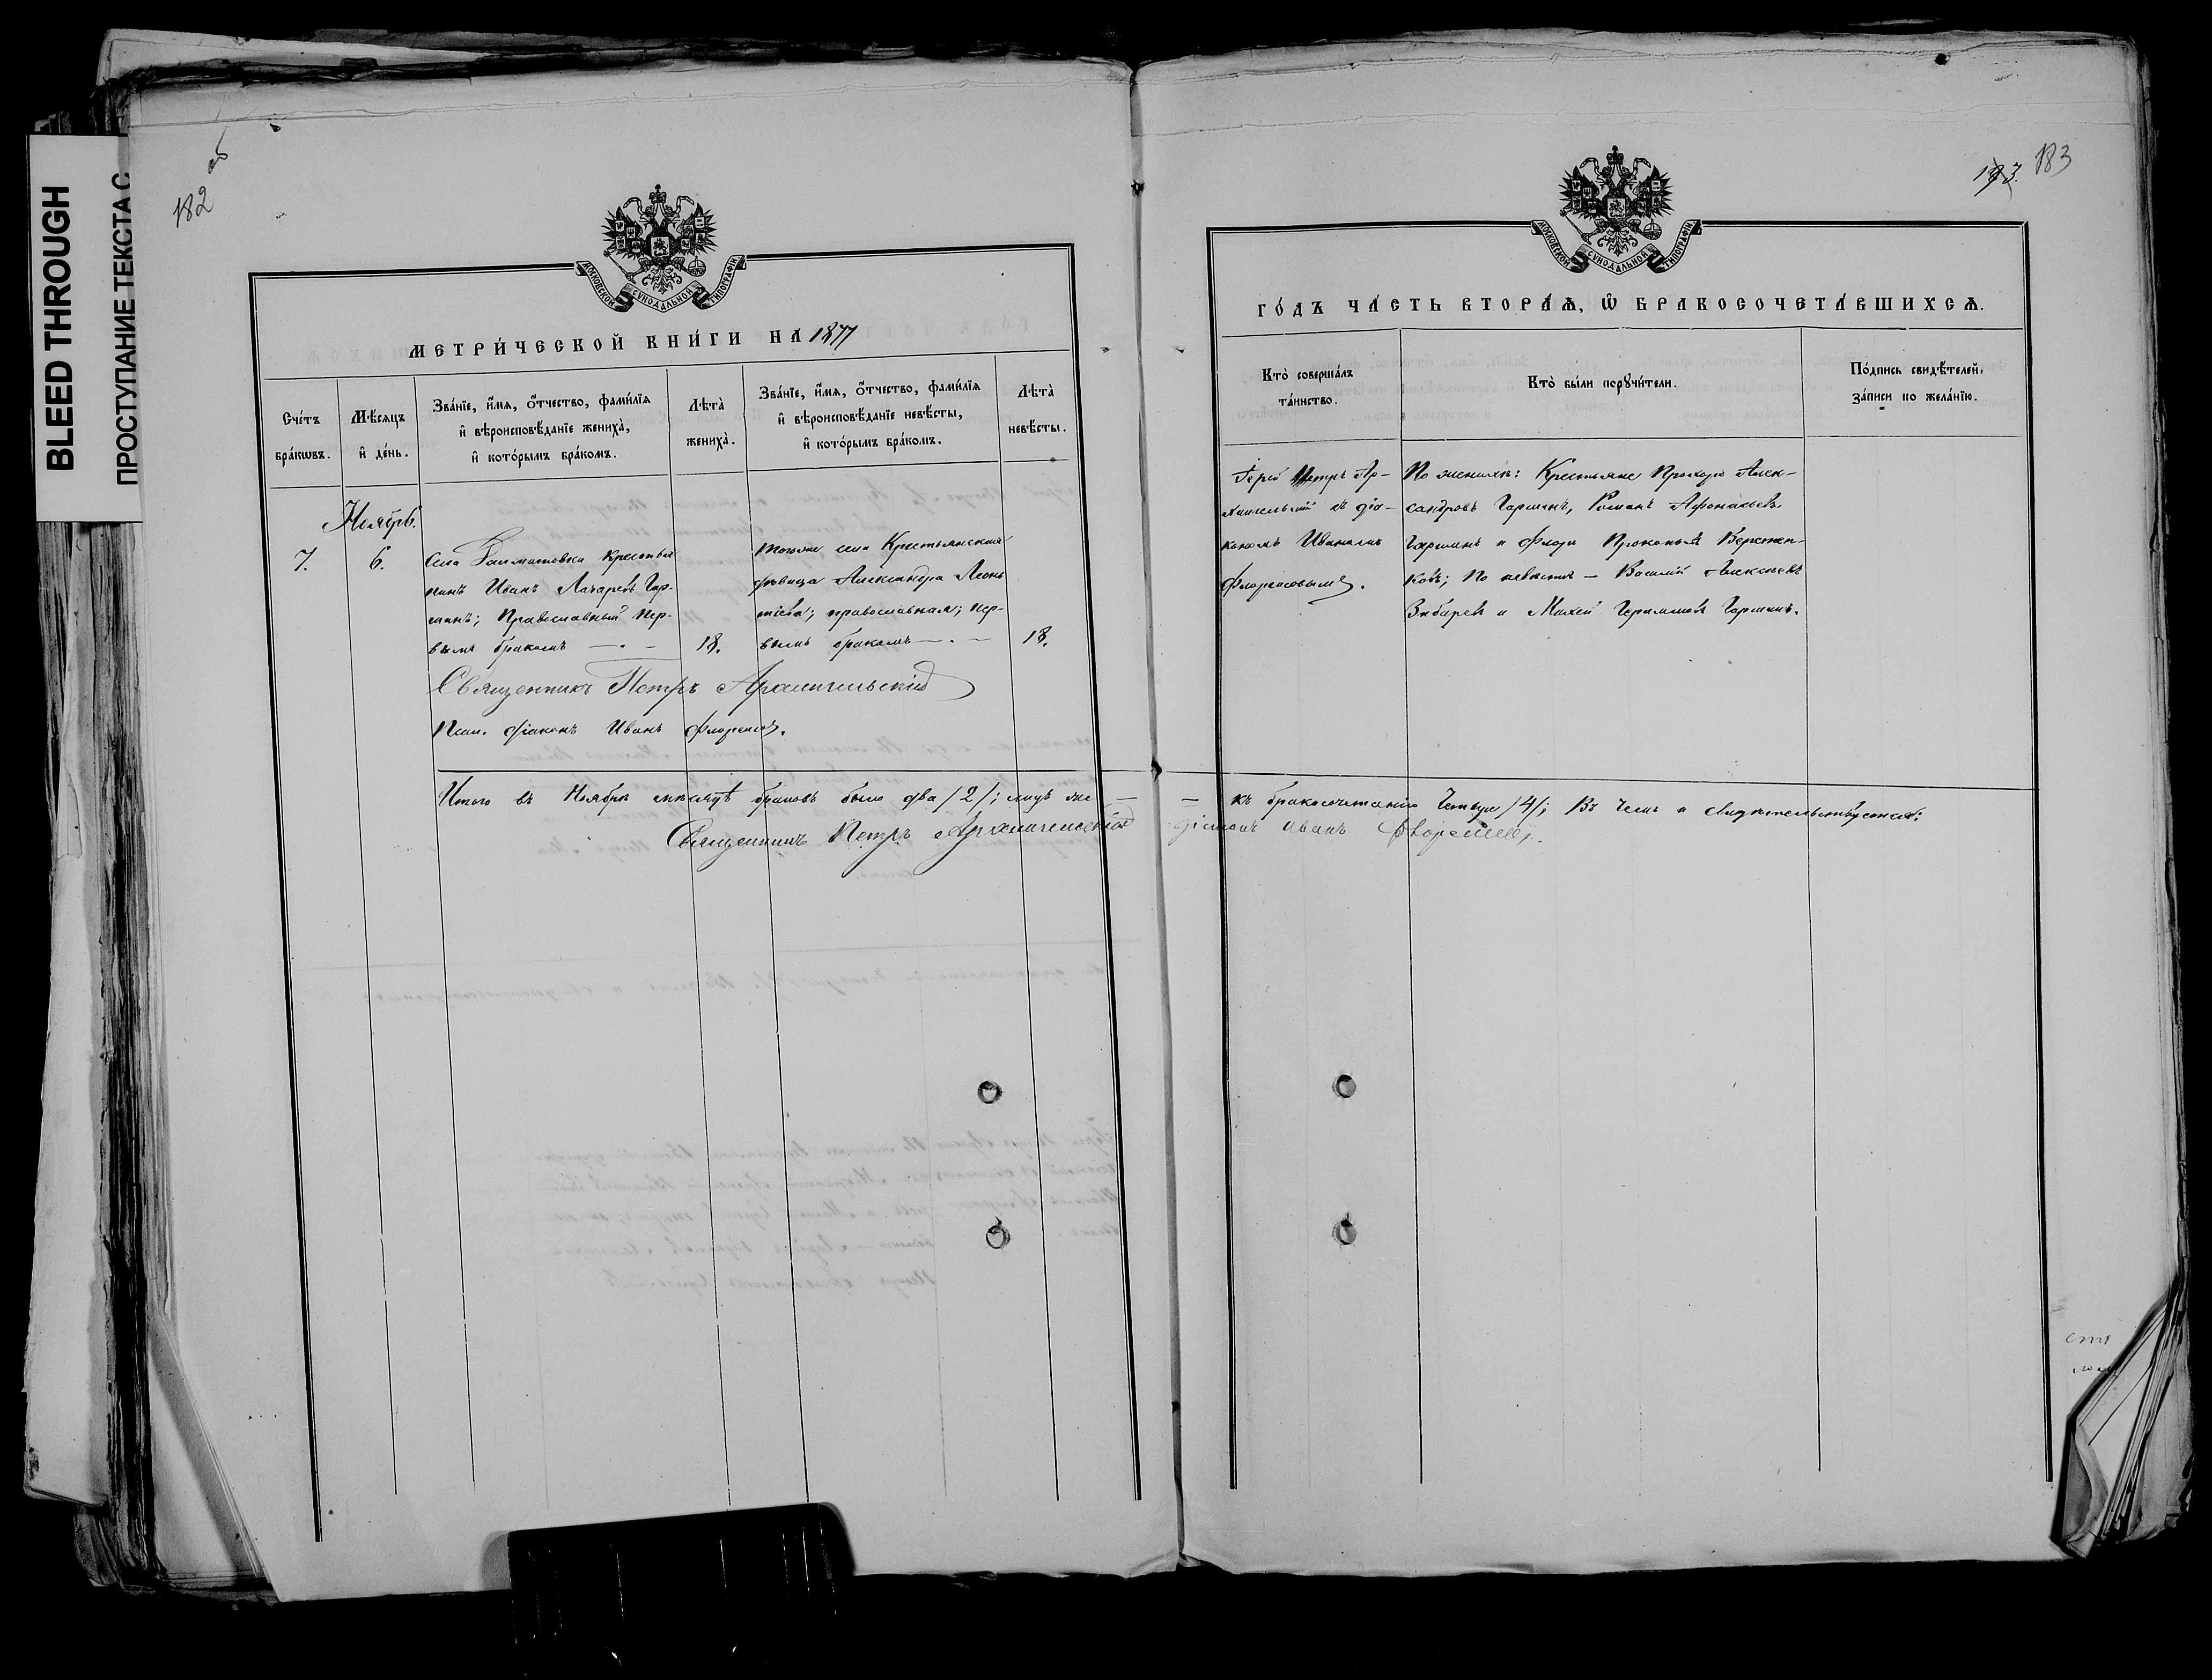 BLEED THROUGH
ПРОСТУПАНИЕ ТЕКСТА С
182 об
МОСКОВСКОЙ СѴНОДАЛЬНОЙ ТИПОГРАФІИ
МЕТРИ́ЧЕСКОЙ КНИ́ГИ НА 1877
Сче́тъ бра́кѡвъ.
Мѣ́сяцъ и҆ де́нь.
Зва́нїе, и҆́мѧ, ѻ҆́тчество, фами́лїѧ и҆ вѣроисповѣ́данїе жениха̀, и҆ кото́рымъ бра́комъ.
Лѣта̀ жениха̀.
Зва́нїе, и҆́мѧ, ѻ҆́тчество, фами́лїѧ и҆ вѣроисповѣ́данїе невѣ́сты, и҆ кото́рымъ бра́комъ.
Лѣта̀ невѣ́сты.
Ноябрь.
7.
6.
Села крестья
нинъ Иванъ Лазаревъ Гар-
шинъ; Православный пер-
вымъ бракомъ — . —
18.
тогоже села Крестьянская
дѣвица Александра Леонь
тіева; православная; пер-
вымъ бракомъ — . —
18.
Священникъ Петръ Архангельскій
Псал. діаконъ Иванъ Флоренсовъ.
Итого въ Ноябрѣ мѣсяцѣ браковъ было два /2/; лицъ же —
Священникъ Петръ Архангельскій
193. 183
МОСКОВСКОЙ СѴНОДАЛЬНОЙ ТИПОГРАФІИ
ГО́ДЪ ЧА́СТЬ ВТОРА́Ѧ, Ѡ҆ БРАКОСОЧЕТА́ВШИХСѦ.
Кто̀ соверша́лъ та́инство.
Кто̀ бы́ли порꙋчи́тели.
По́дпись свидѣ́телей, за́писи по жела́нїю.
Іерей Петръ Ар-
хангельскій съ діа-
кономъ Иваномъ
Флоренсовымъ.
По женихѣ: Крестьяне Прохоръ Алек-
сандровъ Гаршинъ, Романъ Афонасьевъ
Гаршинъ и Флоръ Прокопьевъ
по невѣстѣ — Василій Алексѣевъ
Зибаревъ и Гаршинъ.
— къ бракосочетанію четыре /4/; Въ чемъ и свидѣтельствуется:
діаконъ Иванъ Флоренсовъ.